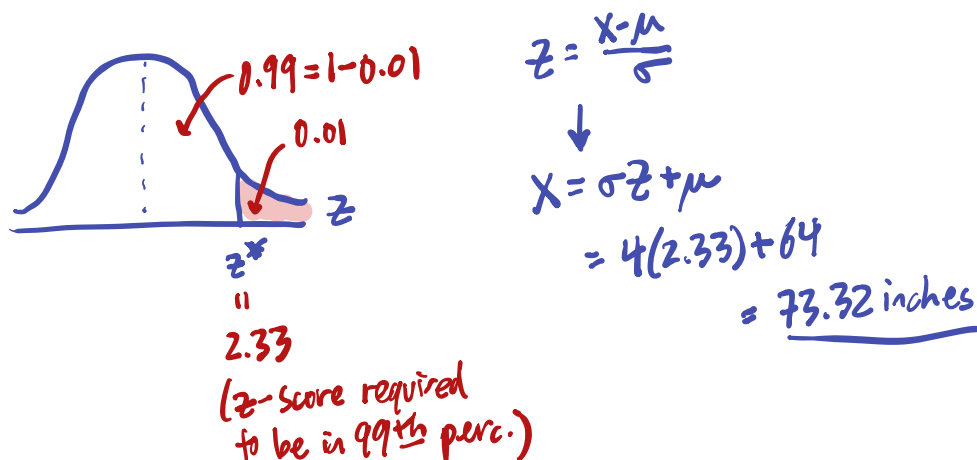 0.99=1-0.01
0.01
z
z*
=
2.33
(z-score required
to be in 99th perc.)
z = x-μ/σ
↓
x = σz+μ
= 4(2.33)+64
= 73.32 inches